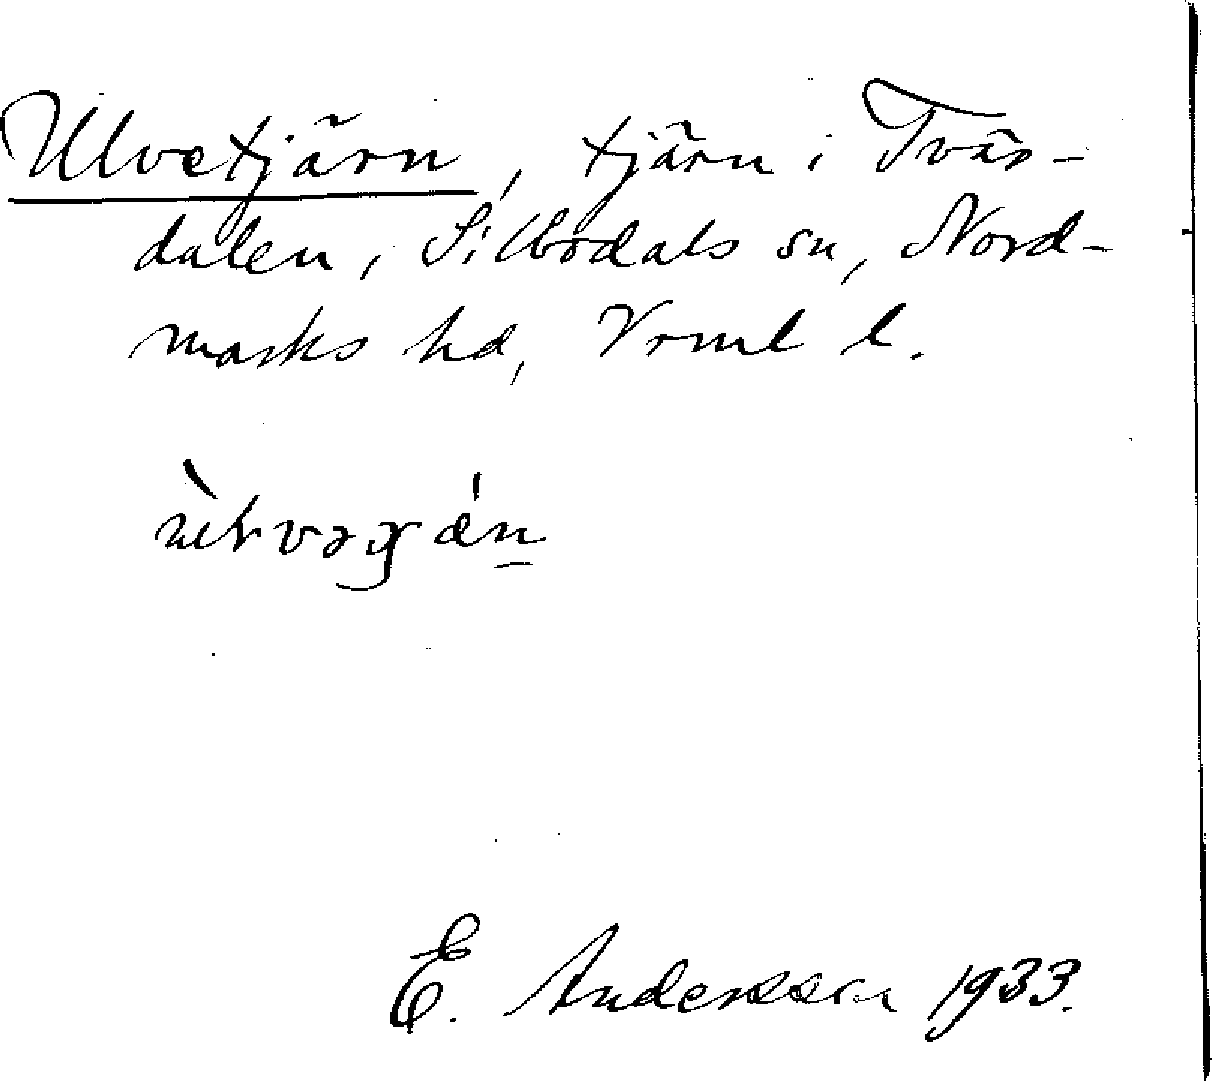 Ulvetjärn, tjärn i Tvär-
dalen, Silbodals sn, Nord-
marks hd, Vrml l.
E. Andersson 1933.